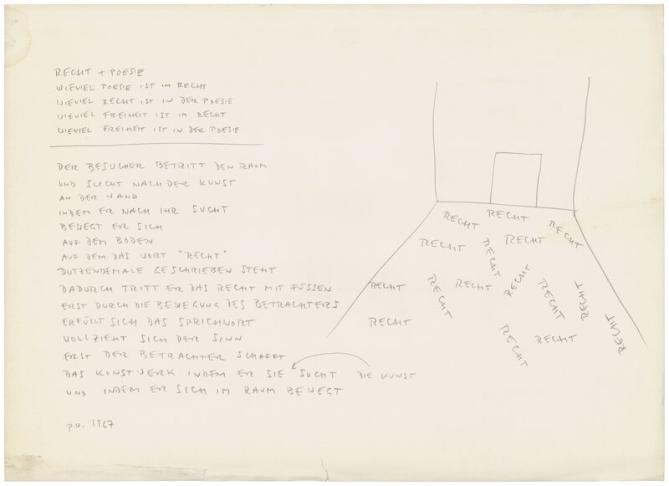 RECHT + POESIE
WIEVIEL POESIE IST IM RECHT
WIEVIEL RECHT IST IN DER POESIE
WIEVIEL FREIHEIT IST IM RECHT
WIEVIEL FREIHEIT IST IN DER POESIE
DER BESUCHER BETRITT DEN RAUM
UND SUCHT NACH DER KUNST
AN DER WAND
INDEM ER NACH IHR SUCHT
BEWEGT ER SICH
AUF DEM BODEN
AUF DEM DAS WORT "RECHT"
DUTZENDEMALE GESCHRIEBEN STEHT
DADURCH TRITT ER DAS RECHT MIT FÜSSEN
ERST DURCH DIE BEWEGUNG DES BETRACHTERS
ERFÜLLT SICH DAS SPRICHWORT
VOLLZIEHT SICH DER SINN
ERST DER BETRACHTER SCHAFFT
DAS KUNSTWERK INDEM ER SIE SUCHT DIE KUNST
UND INDEM ER SICH IM RAUM BEWEGT
p.w. 1967
RECHT RECHT RECHT
RECHT RECHT RECHT
RECHT RECHT RECHT RECHT RECHT RECHT
RECHT RECHT RECHT RECHT